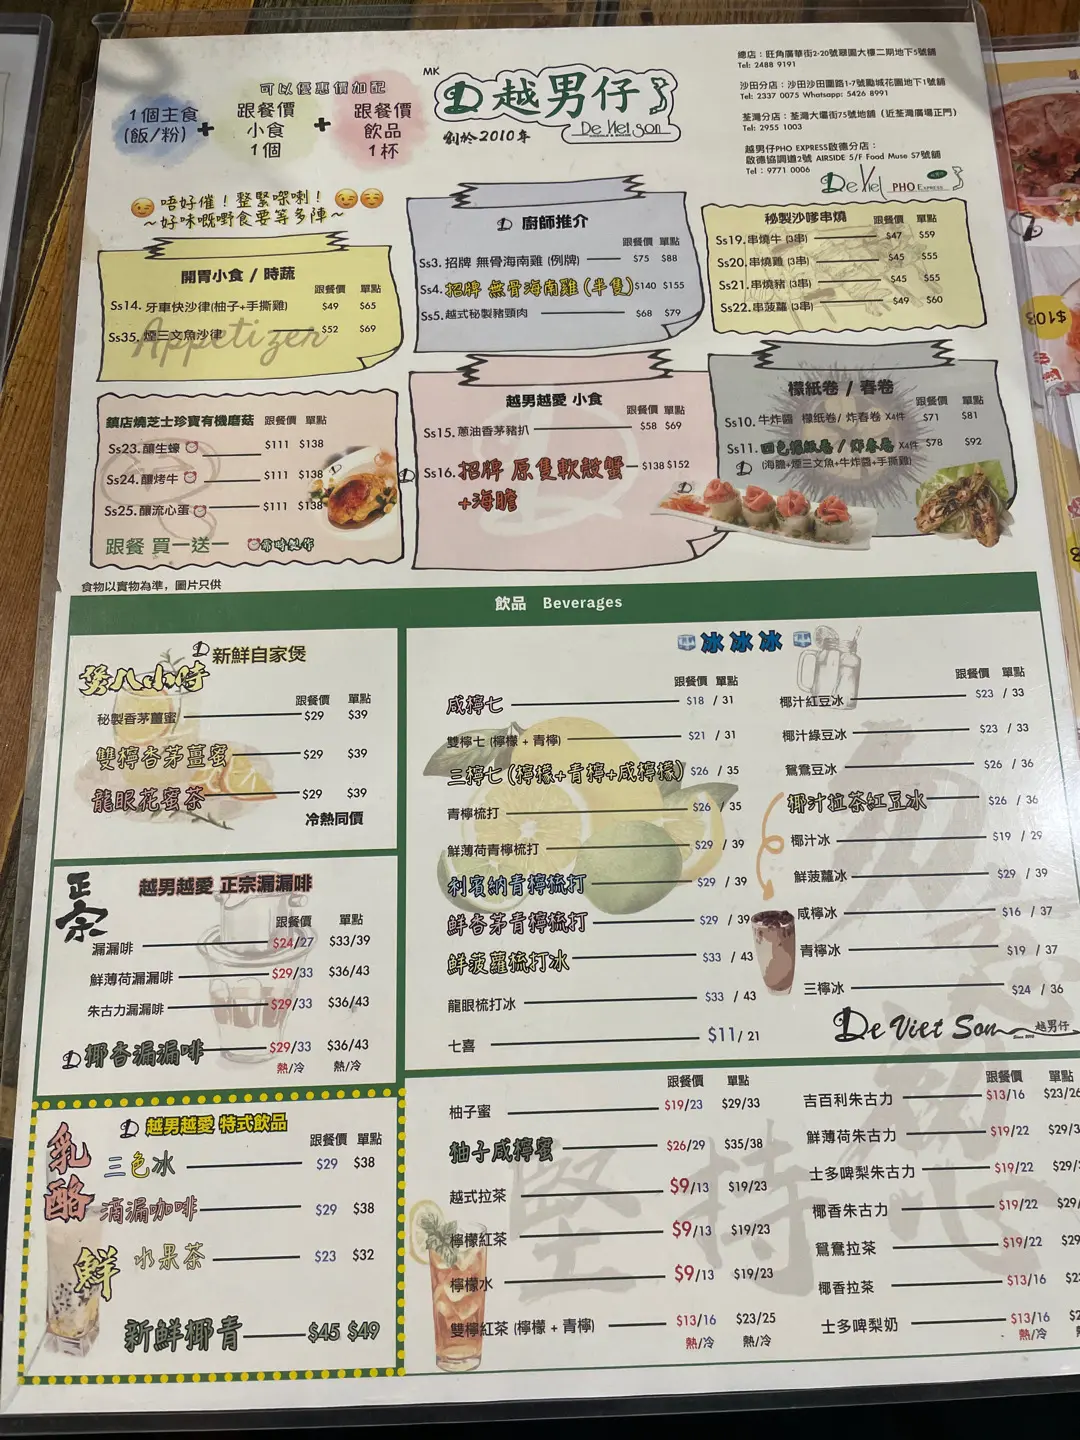 可以優惠價加配
1個主食
(飯/粉)
+
跟餐價
小食
1個
+
跟餐價
飲品
1杯
MK
越男仔
創於2010年
De Viet Son
總店：旺角廣華街2-20號翠園大樓二期地下5號舖
Tel: 2488 9191
沙田分店：沙田沙田圍路1-7號勵城花園地下1號舖
Tel: 2337 0075 Whatsapp: 5426 8991
荃灣分店：荃灣大壩街75號地舖（近荃灣廣場正門）
Tel: 2955 1003
越男仔PHO EXPRESS啟德分店：
啟德協調道2號 AIRSIDE 5/F Food Muse S7號舖
Tel : 9771 0006
De Viet PHO EXPRESS
唔好催！整緊㗎喇！
~好味嘅嘢食要等多陣~
開胃小食 / 時蔬
跟餐價 單點
Ss14. 牙車快沙律(柚子+手撕雞) $49 $65
Ss35. 煙三文魚沙律 $52 $69
Appetizer
廚師推介
跟餐價 單點
Ss3. 招牌 無骨海南雞 (例牌) $75 $88
Ss4. 招牌 無骨海南雞 (半隻) $140 $155
Ss5. 越式秘製豬頸肉 $68 $79
秘製沙嗲串燒 跟餐價 單點
Ss19. 串燒牛 (3串) $47 $59
Ss20. 串燒雞 (3串) $45 $55
Ss21. 串燒豬 (3串) $45 $55
Ss22. 串菠蘿 (3串) $49 $60
鎮店燒芝士珍寶有機磨菇 跟餐價 單點
Ss23. 釀生蠔 $111 $138
Ss24. 釀烤牛 $111 $138
Ss25. 釀流心蛋 $111 $138
跟餐 買一送一 需時製作
越男越愛 小食
跟餐價 單點
Ss15. 蔥油香茅豬扒 $58 $69
Ss16. 招牌 原隻軟殼蟹 $138 $152
+海膽
檬紙卷 / 春卷
跟餐價 單點
Ss10. 牛炸醬 檬紙卷/ 炸春卷 X4件 $71 $81
Ss11. 四色檬紙卷 / 炸春卷 X4件 $78 $92
(海膽+煙三文魚+牛炸醬+手撕雞)
食物以實物為準，圖片只供
飲品 Beverages
新鮮自家煲
煲八小時
跟餐價 單點
秘製香茅薑蜜 $29 $39
雙檸香茅薑蜜 $29 $39
龍眼花蜜茶 $29 $39
冷熱同價
正宗
越男越愛 正宗漏漏啡
跟餐價 單點
漏漏啡 $24/27 $33/39
鮮薄荷漏漏啡 $29/33 $36/43
朱古力漏漏啡 $29/33 $36/43
椰香漏漏啡 $29/33 $36/43
熱/冷 熱/冷
乳酪鮮
越男越愛 特式飲品
跟餐價 單點
三色冰 $29 $38
滴漏咖啡 $29 $38
水果茶 $23 $32
新鮮椰青 $45 $49
冰 冰 冰
跟餐價 單點
咸檸七 $18 / 31
雙檸七 (檸檬 + 青檸) $21 / 31
三檸七 (檸檬+青檸+咸檸檬) $26 / 35
青檸梳打 $26 / 35
鮮薄荷青檸梳打 $29 / 39
利賓納青檸梳打 $29 / 39
鮮香茅青檸梳打 $29 / 39
鮮菠蘿梳打冰 $33 / 43
龍眼梳打冰 $33 / 43
七喜 $11 / 21
跟餐價 單點
椰汁紅豆冰 $23 / 33
椰汁綠豆冰 $23 / 33
鴛鴦豆冰 $26 / 36
椰汁拉茶紅豆冰 $26 / 36
椰汁冰 $19 / 29
鮮菠蘿冰 $29 / 39
咸檸冰 $16 / 37
青檸冰 $19 / 37
三檸冰 $24 / 36
De Viet Son 越男仔
跟餐價 單點
柚子蜜 $19/23 $29/33
柚子咸檸蜜 $26/29 $35/38
越式拉茶 $9/13 $19/23
檸檬紅茶 $9/13 $19/23
檸檬水 $9/13 $19/23
雙檸紅茶 (檸檬 + 青檸) $13/16 $23/25
熱/冷 熱/冷
跟餐價 單點
吉百利朱古力 $13/16 $23/26
鮮薄荷朱古力 $19/22 $29/3
士多啤梨朱古力 $19/22 $29/
椰香朱古力 $19/22 $29/
鴛鴦拉茶 $19/22 $29
椰香拉茶 $13/16 $2
士多啤梨奶 $13/16 $2
熱/冷
堅持
$103